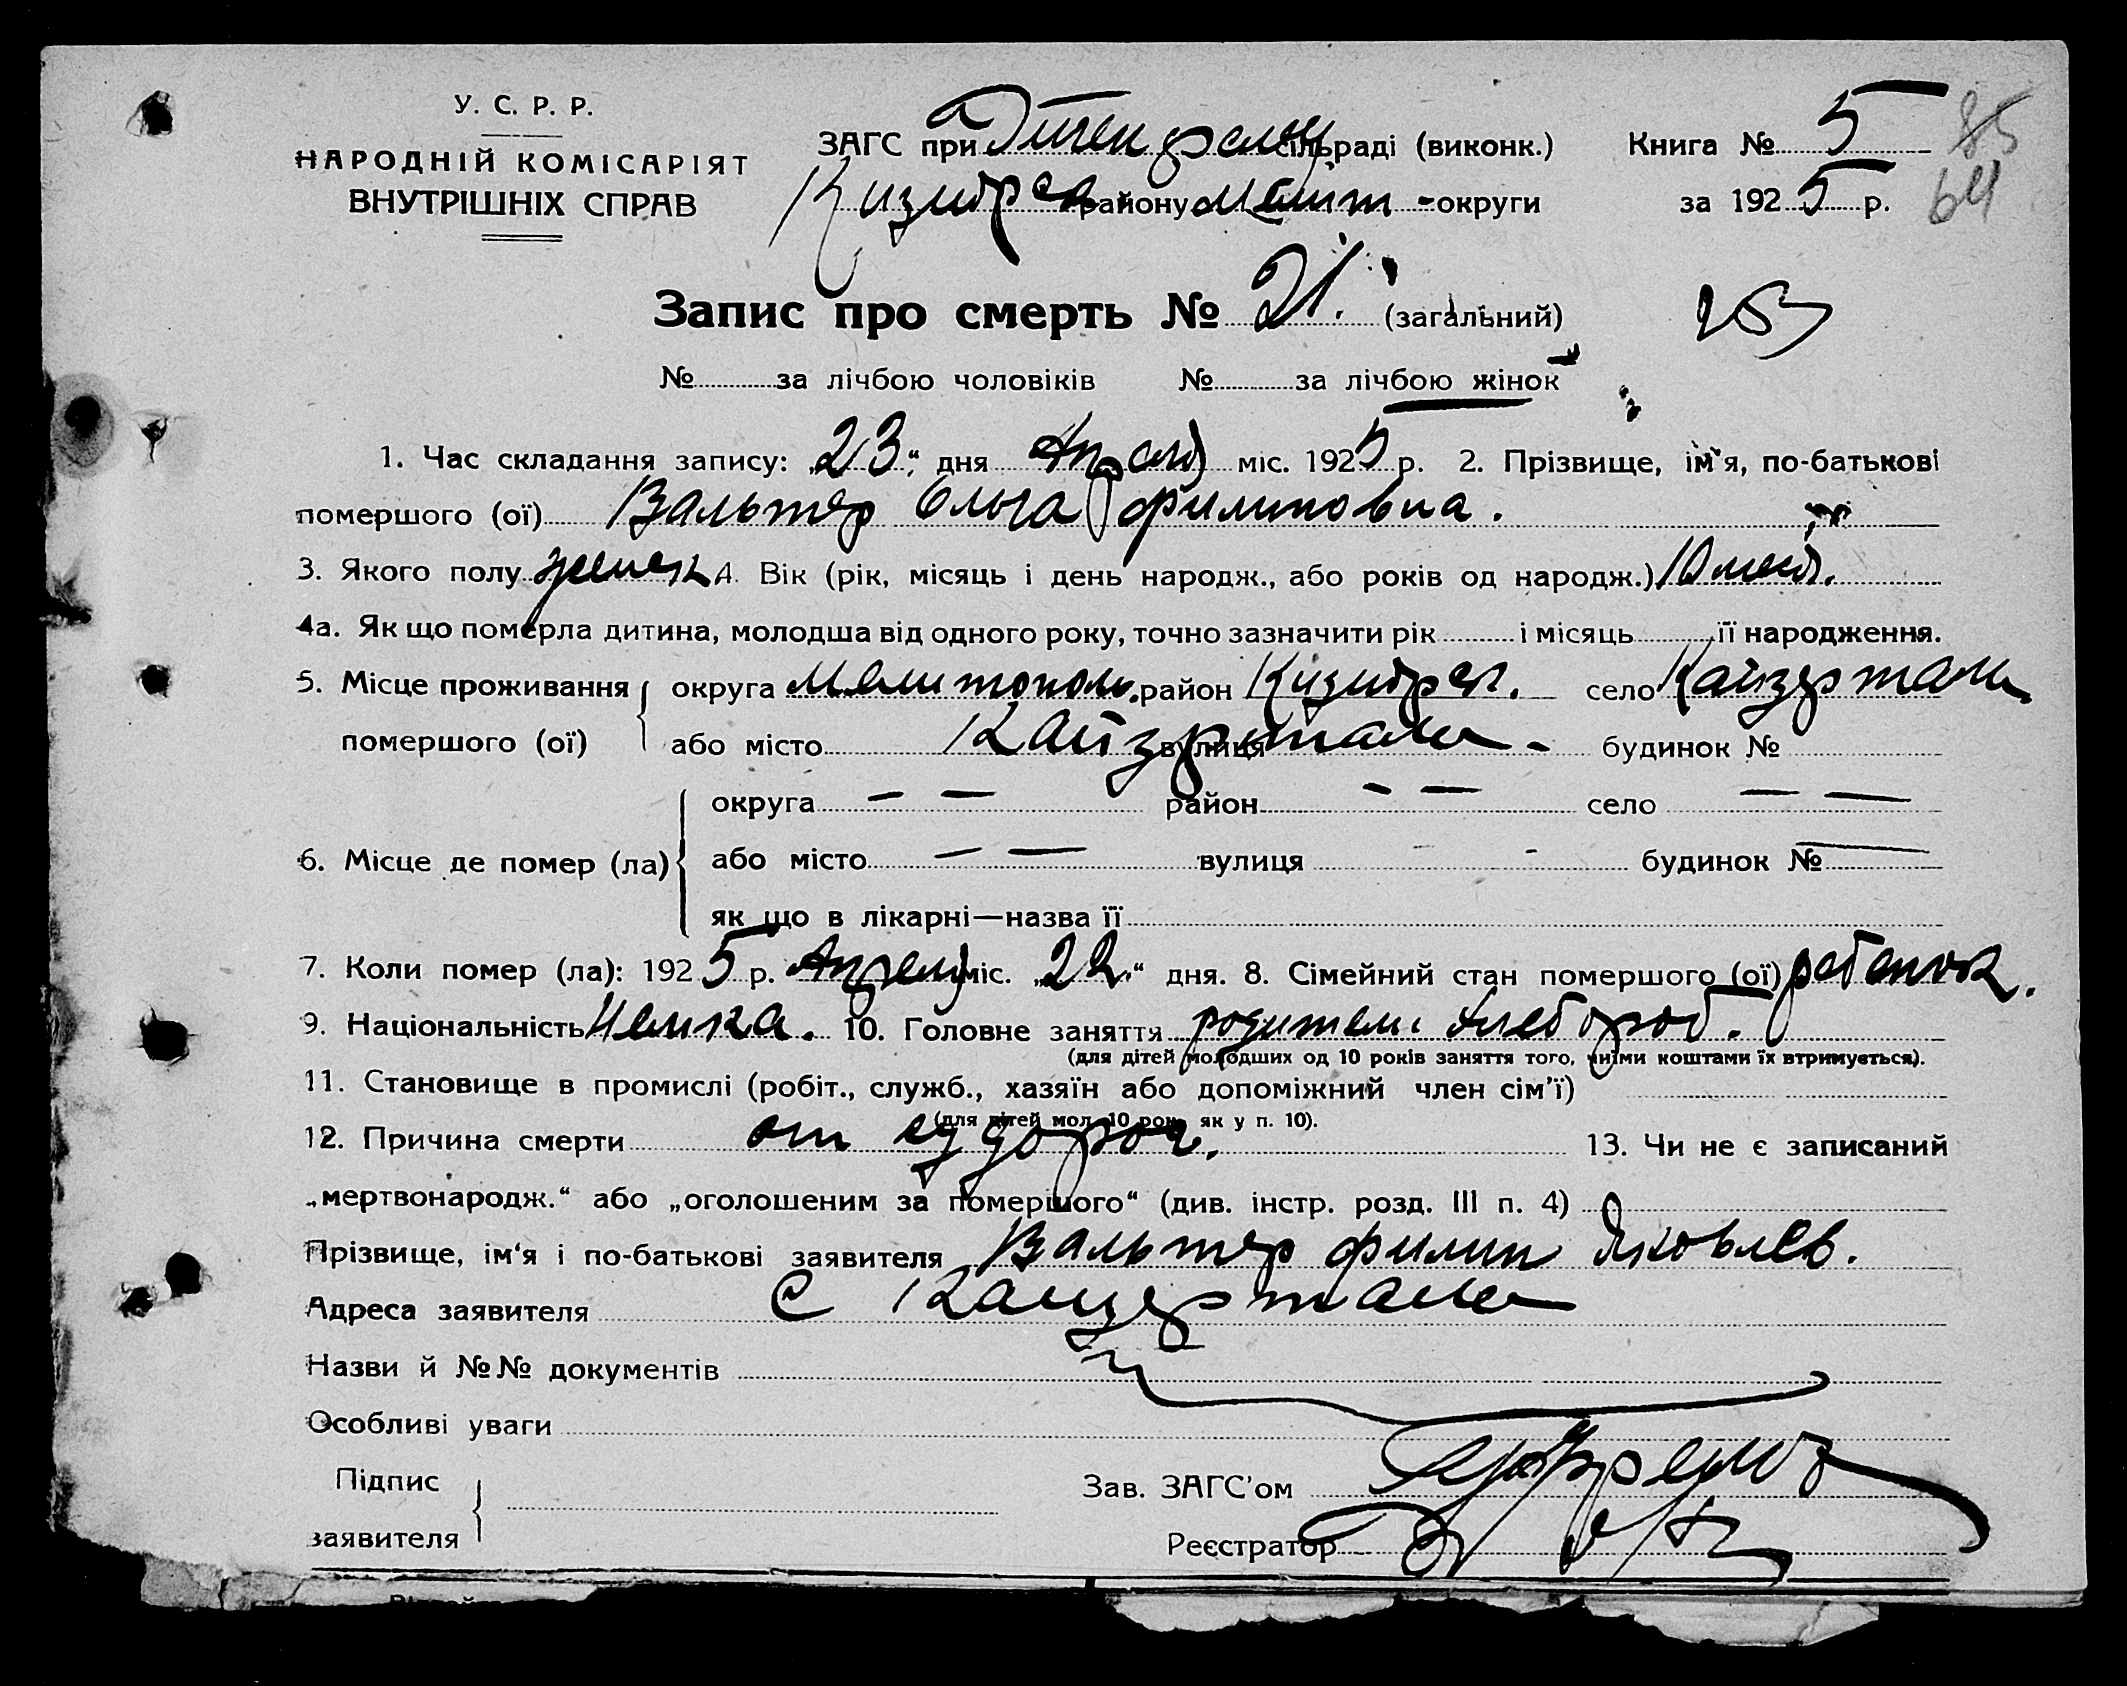 У. С. Р. Р.
НАРОДНІЙ КОМІСАРІЯТ
ВНУТРІШНІХ СПРАВ
ЗАГС при сільраді (виконк.)
району Меліт - округи
Книга № 5
за 1925 р.
85
64
Запис про смерть № 21. (загальний)
№ за лічбою чоловіків № за лічбою жінок
1. Час складання запису: „23“ дня Апреля міс. 1925 р. 2. Прізвище, ім'я, по-батькові
помершого (ої) Вальтер Ольга Филиповна.
3. Якого полу женск 4. Вік (рік, місяць і день народж., або років од народж.) 10 мест.
4а. Як що померла дитина, молодша від одного року, точно зазначити рік і місяць її народження.
5. Місце проживання помершого (ої) округа Мелитополь. район село Кайзерталь
або місто Кайзерталь - вулиця будинок №
6. Місце де помер (ла) округа — — район - — село — —
або місто — — вулиця - - будинок № —
як що в лікарні—назва її
7. Коли помер (ла): 1925 р. Апреля міс. „22“ дня. 8. Сімейний стан помершого (ої) ребенок.
9. Національність Немка. 10. Головне заняття родители хлебороб.
(для дітей молодших од 10 років заняття того, чиїми коштами їх втримується).
11. Становище в промислі (робіт., служб., хазяїн або допоміжний член сім'ї)
(для дітей мол. 10 рок. як у п. 10).
12. Причина смерти от 13. Чи не є записаний
„мертвонародж.“ або „оголошеним за помершого“ (див. інстр. розд. III п. 4)
Прізвище, ім'я і по-батькові заявителя Вальтер Филип Яковлев.
Адреса заявителя с Кайзерталь
Назви й №№ документів
Особливі уваги
Підпис
заявителя
Зав. ЗАГС'ом
Реєстратор